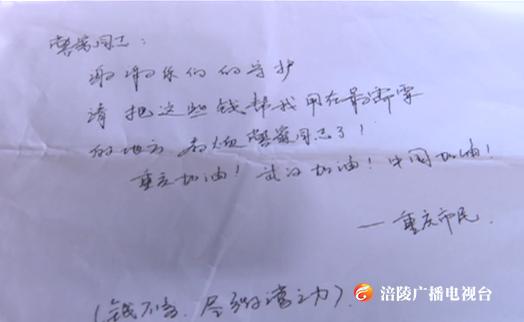 警察同志：
谢谢你们的守护
请把这些钱帮我用在最需要
的地方 麻烦警察同志了！
重庆加油！武汉加油！中国加油！
一重庆市民.
（钱不多，尽绵薄之力）.
涪陵广播电视台